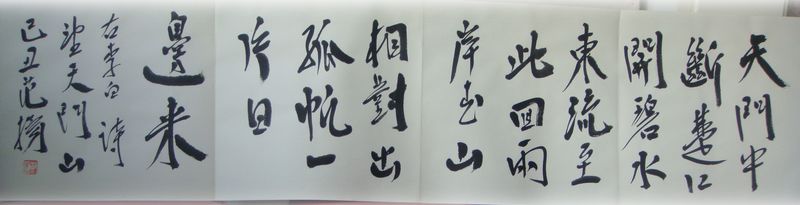 天門中
斷楚江
開碧水
東流至
此回兩
岸青山
相對出
孤帆一
片日
邊来
右李白詩
望天門山
己丑范揚